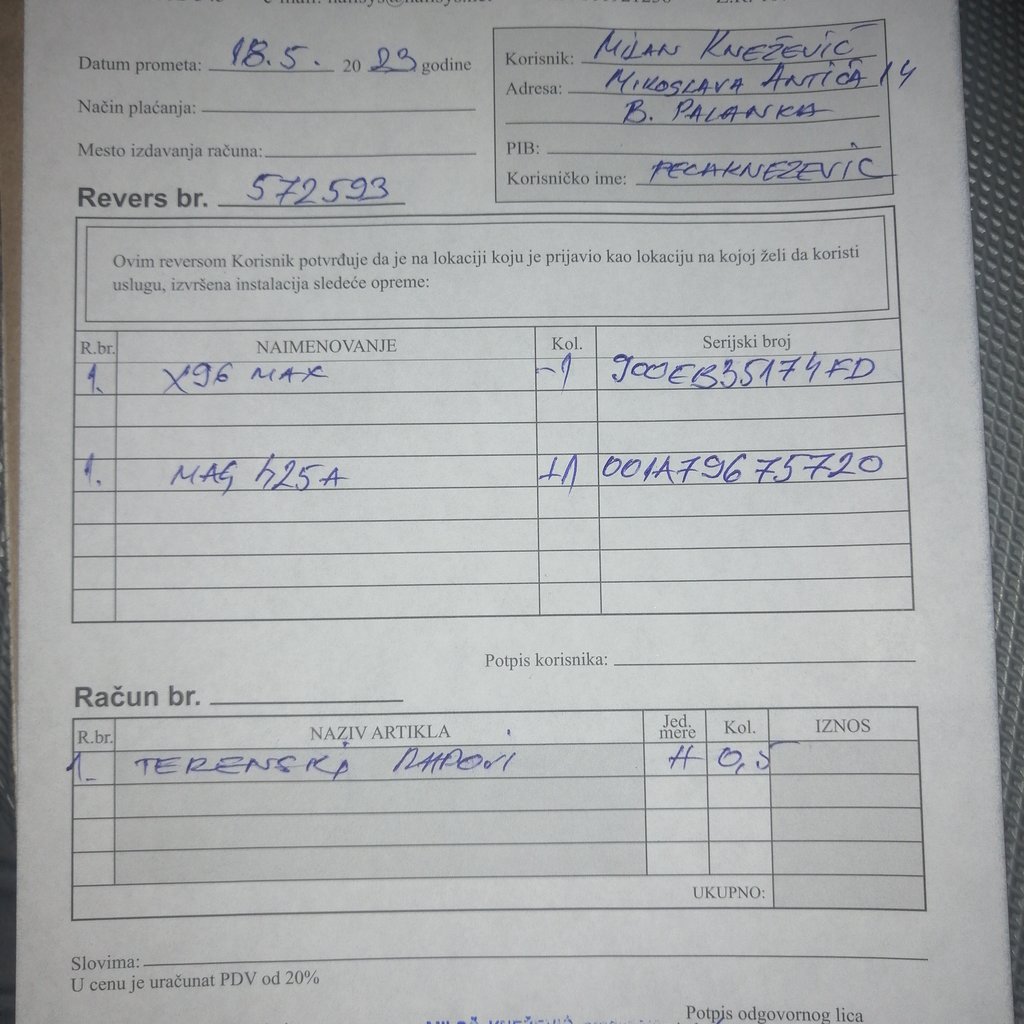 Datum prometa: 18.5. 20 23 godine
Način plaćanja:
Mesto izdavanja računa:
Revers br. 572593
Korisnik: MILAN KNEŽEVIĆ
Adresa: MIROSLAVA ANTIĆA 14
B. PALANKA
PIB:
Korisničko ime: PECAKNEZEVIC
Ovim reversom Korisnik potvrđuje da je na lokaciji koju je prijavio kao lokaciju na kojoj želi da koristi
uslugu, izvršena instalacija sledeće opreme:
R.br. NAIMENOVANJE Kol. Serijski broj
1. X96 MAX -1 900EB35174FD
1. MAG 425A +1 001A79675720
Potpis korisnika:
Račun br.
R.br. NAZIV ARTIKLA Jed. mere Kol. IZNOS
1. TERENSKI RADOVI H 0,5
UKUPNO:
Slovima:
U cenu je uračunat PDV od 20%
Potpis odgovornog lica